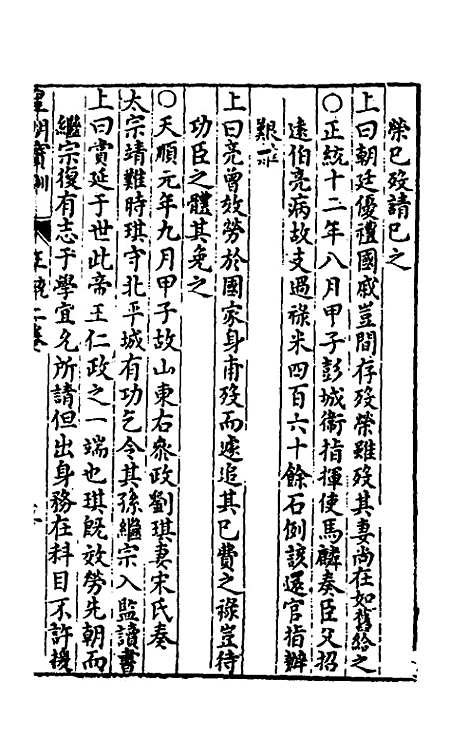 榮已歿請已之
上曰朝廷優禮國戚豈間存歿榮雖歿其妻尚在如舊給之
○正統十二年八月甲子彭城衛指揮使馬麟奏臣父招
遠伯亮病故支過祿米四百六十餘石例該還官措辦
艱難
上曰亮曾效勞於國家身甫歿而遽追其已費之祿豈待
功臣之體其免之
○天順元年九月甲子故山東右參政劉琪妻宋氏奏
太宗靖難時琪守北平城有功乞令其孫繼宗入監讀書
上曰賞延于世此帝王仁政之一端也琪旣效勞先朝而
繼宗復有志于學宜允所請但出身務在科目不許援
皇明寶訓 正統二卷